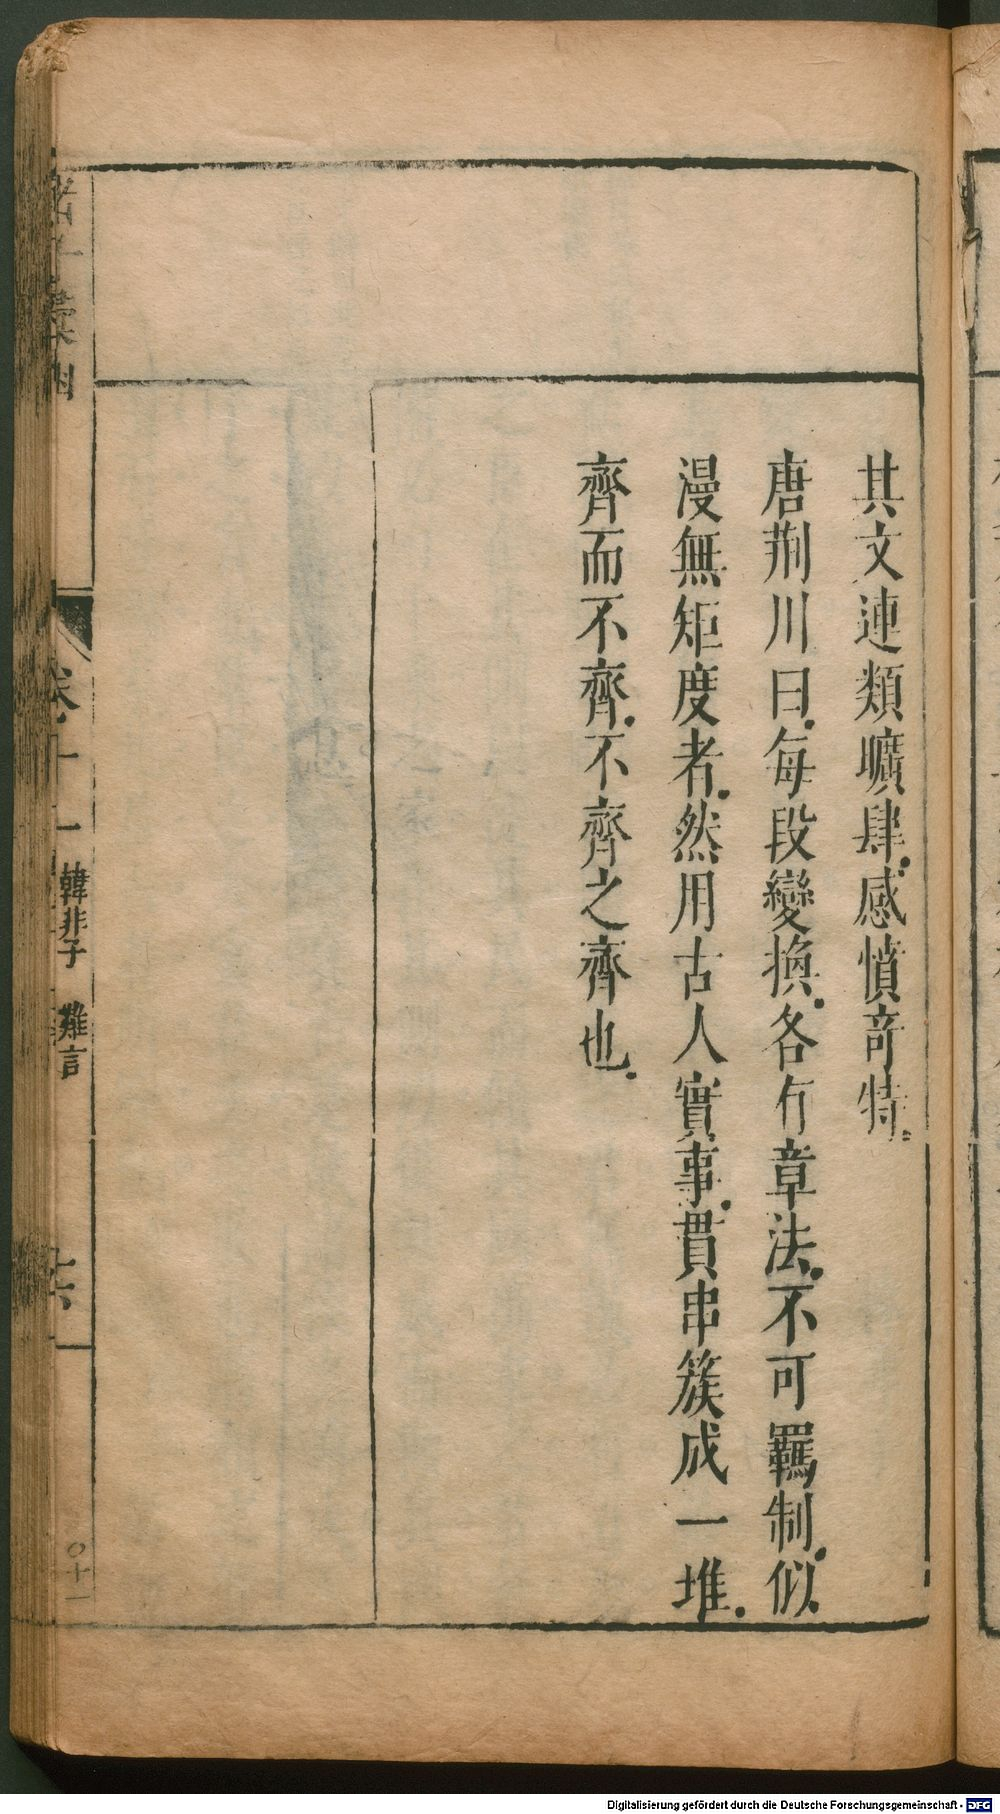 其文連類曠肆.感憤奇特.
唐荊川曰.每段變換.各有章法.不可羈制.似
漫無矩度者.然用古人實事.貫串簇成一堆.
齊而不齊.不齊之齊也.
諸子彙函
卷十一
韓非子 難言
十六
〇十一
Digitalisierung gefördert durch die Deutsche Forschungsgemeinschaft - DFG